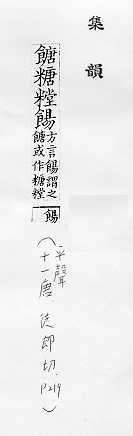 集韻
餹糖糛餳
方言餳謂之
餹或作糖糛
餳
平聲
(十一唐.徒郎切.P219)